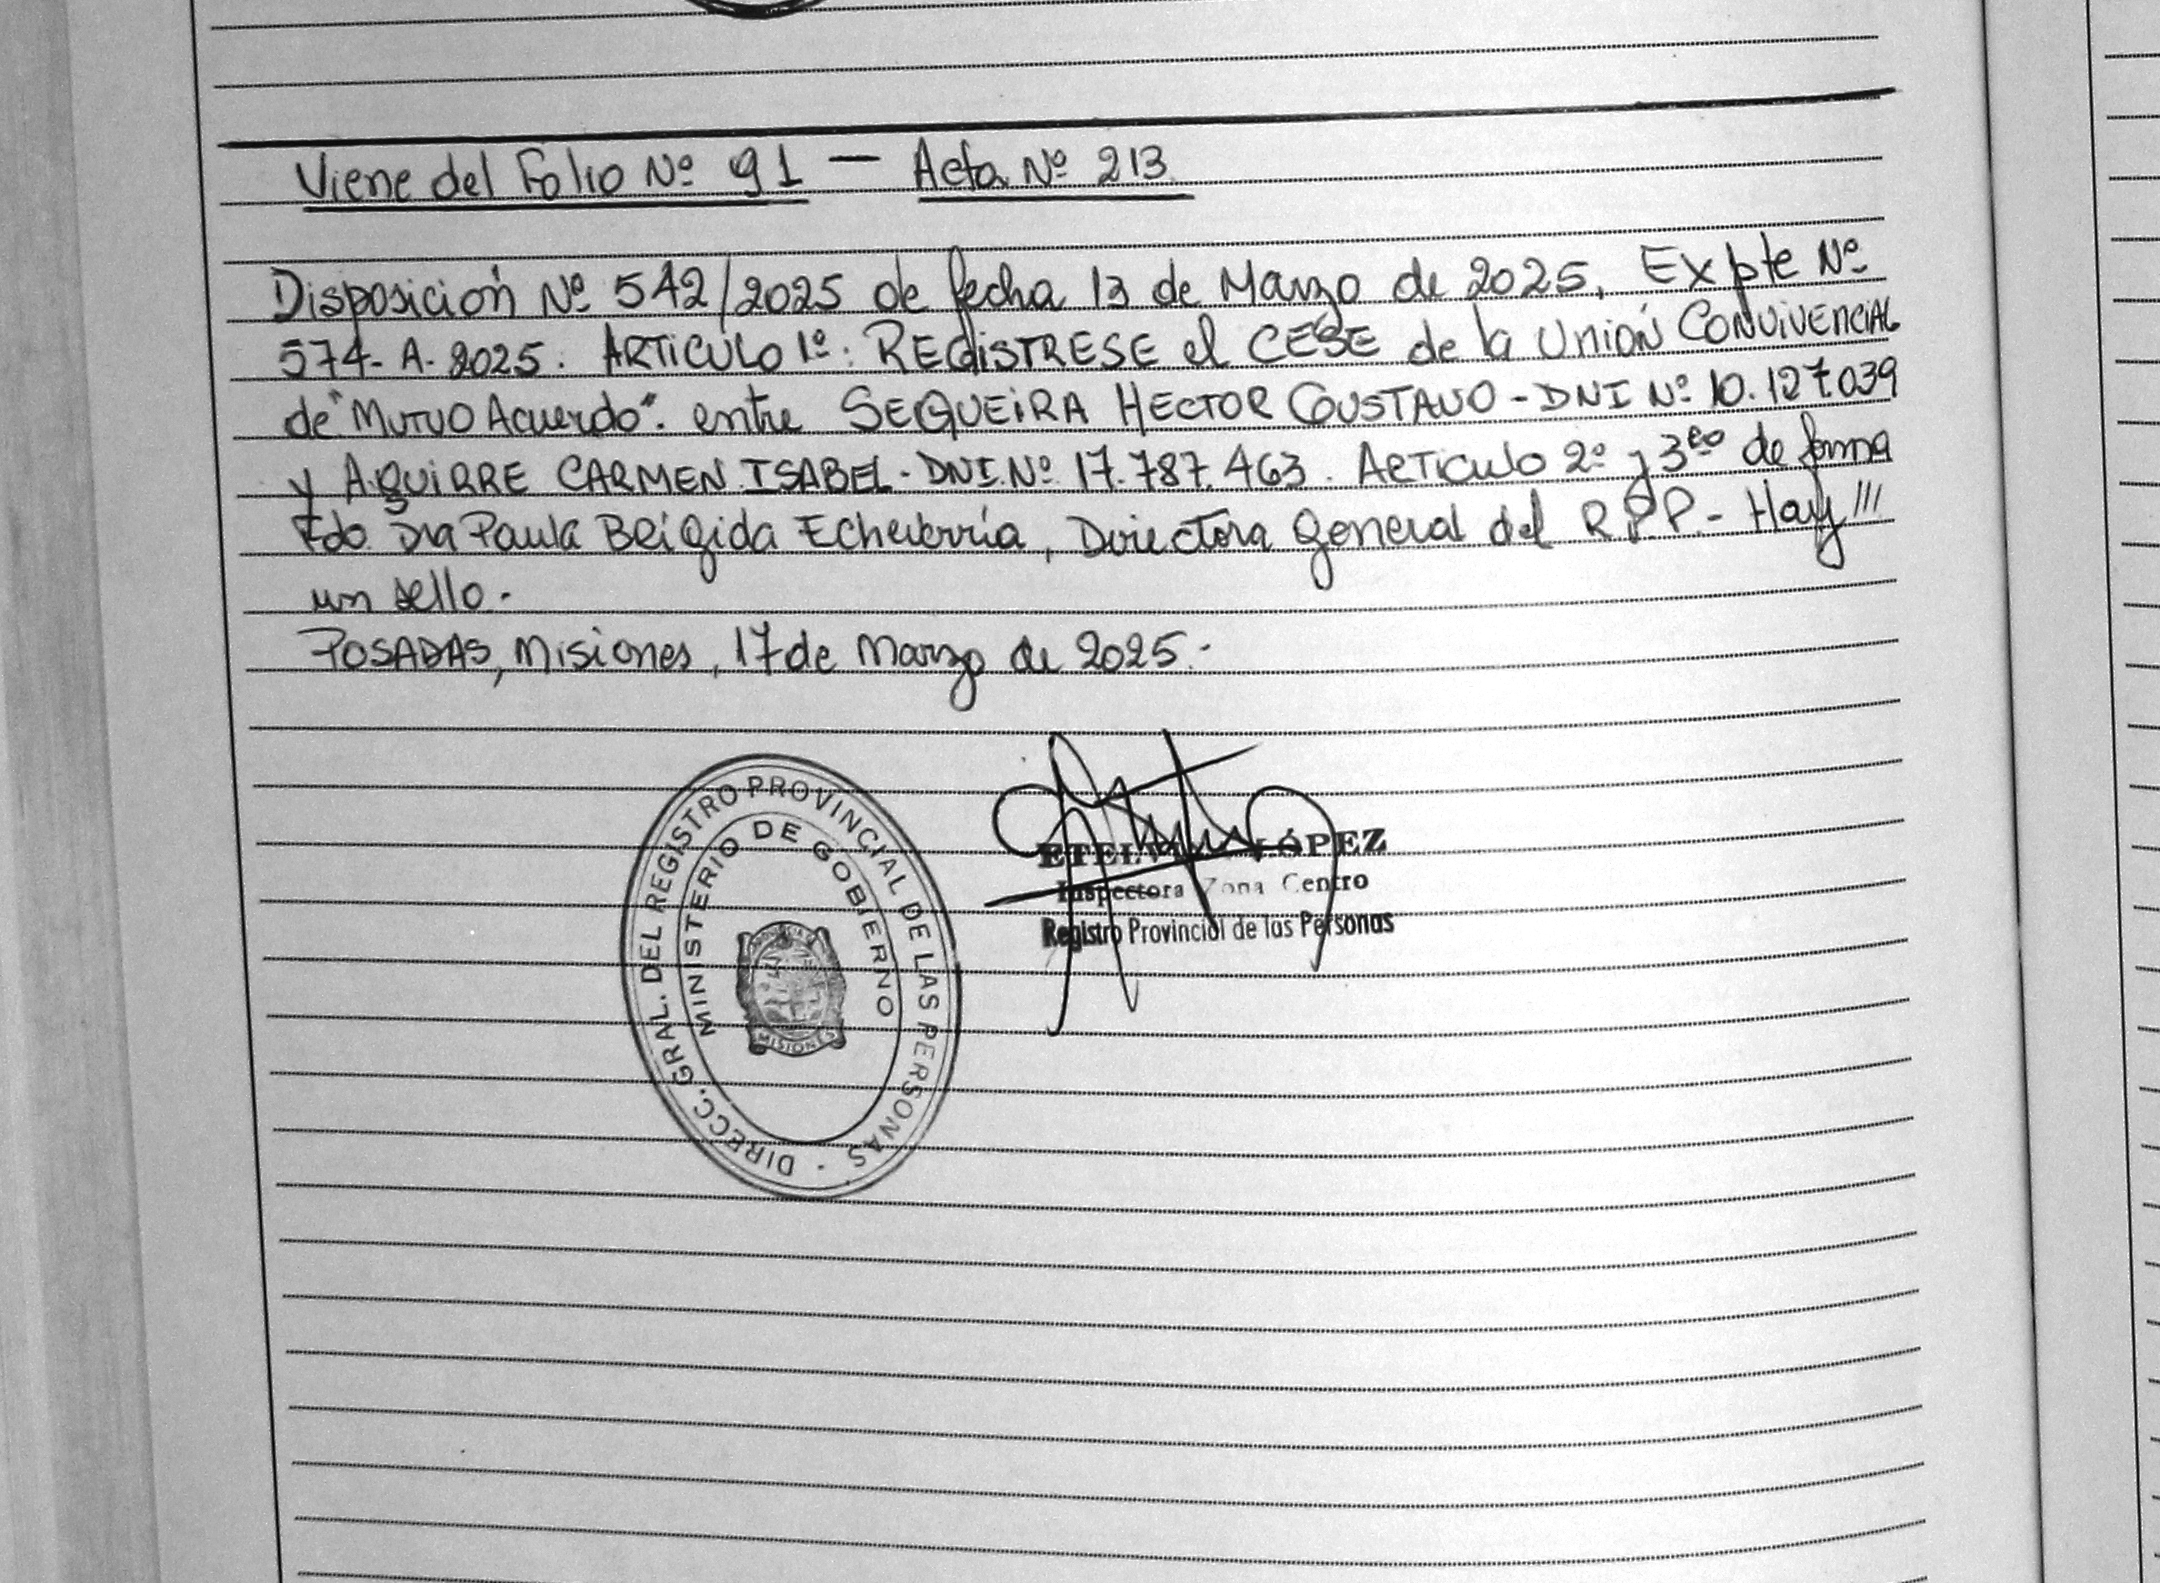 Viene del Folio Nº 91 — Acta Nº 213
Disposición Nº 542/2025 de fecha 13 de Marzo de 2025, Expte Nº
574-A-2025. ARTICULO 1º: REGISTRESE el CESE de la Unión CONVIVENCIAL
de "MUTUO Acuerdo". entre SEQUEIRA HECTOR GUSTAVO - DNI Nº 10.127.039
y AGUIRRE CARMEN ISABEL - DNI.Nº 17.787.463. ARTiculo 2º y 3ero de forma
Fdo. Dra Paula Brigida Echeverría, Directora General del R.P.P. - Hay
un sello.-
POSADAS, Misiones, 17 de Marzo de 2025.-
DIRECC. GRAL. DEL REGISTRO PROVINCIAL DE LAS PERSONAS
MINISTERIO DE GOBIERNO
MISIONES
LÓPEZ
Inspectora Zona Centro
Registro Provincial de las Personas